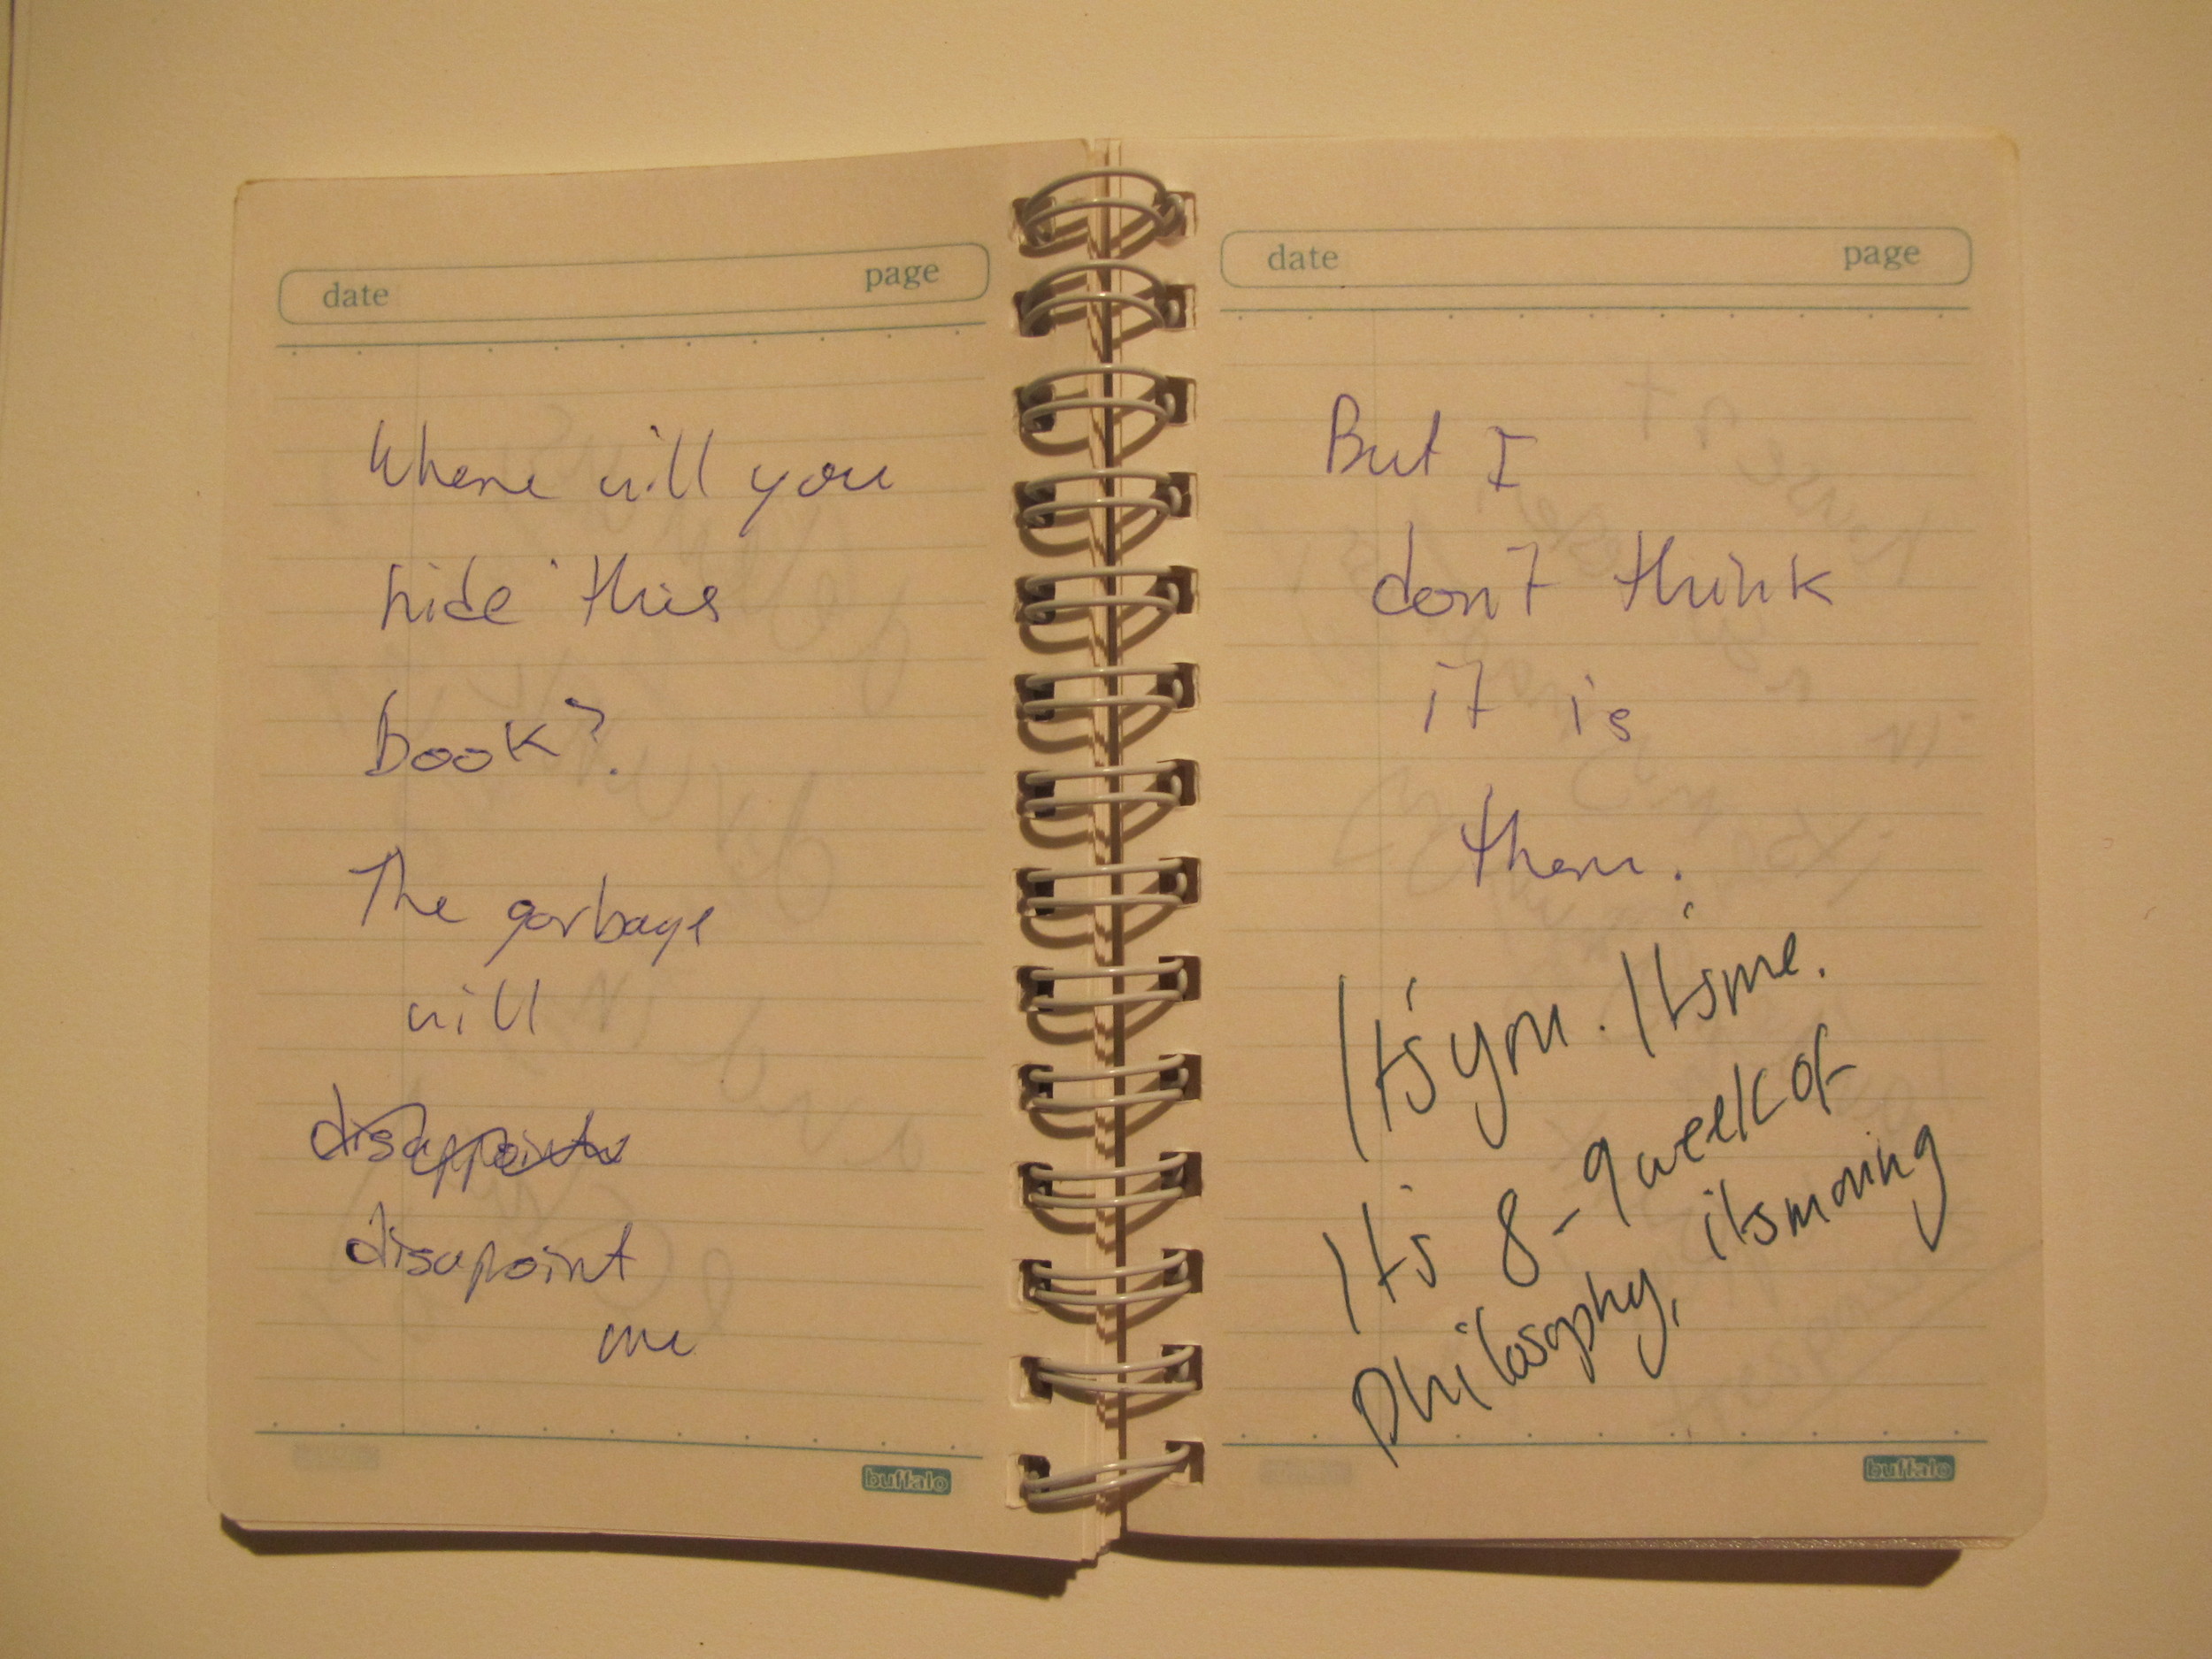 date page
Where will you
hide this
book?
The garbage
will
disappoints
disapoint
me
buffalo
date page
But I
don't think
it is
them.
It's you. Itsme.
It's 8-9 week of
philosophy, itsmoving
buffalo